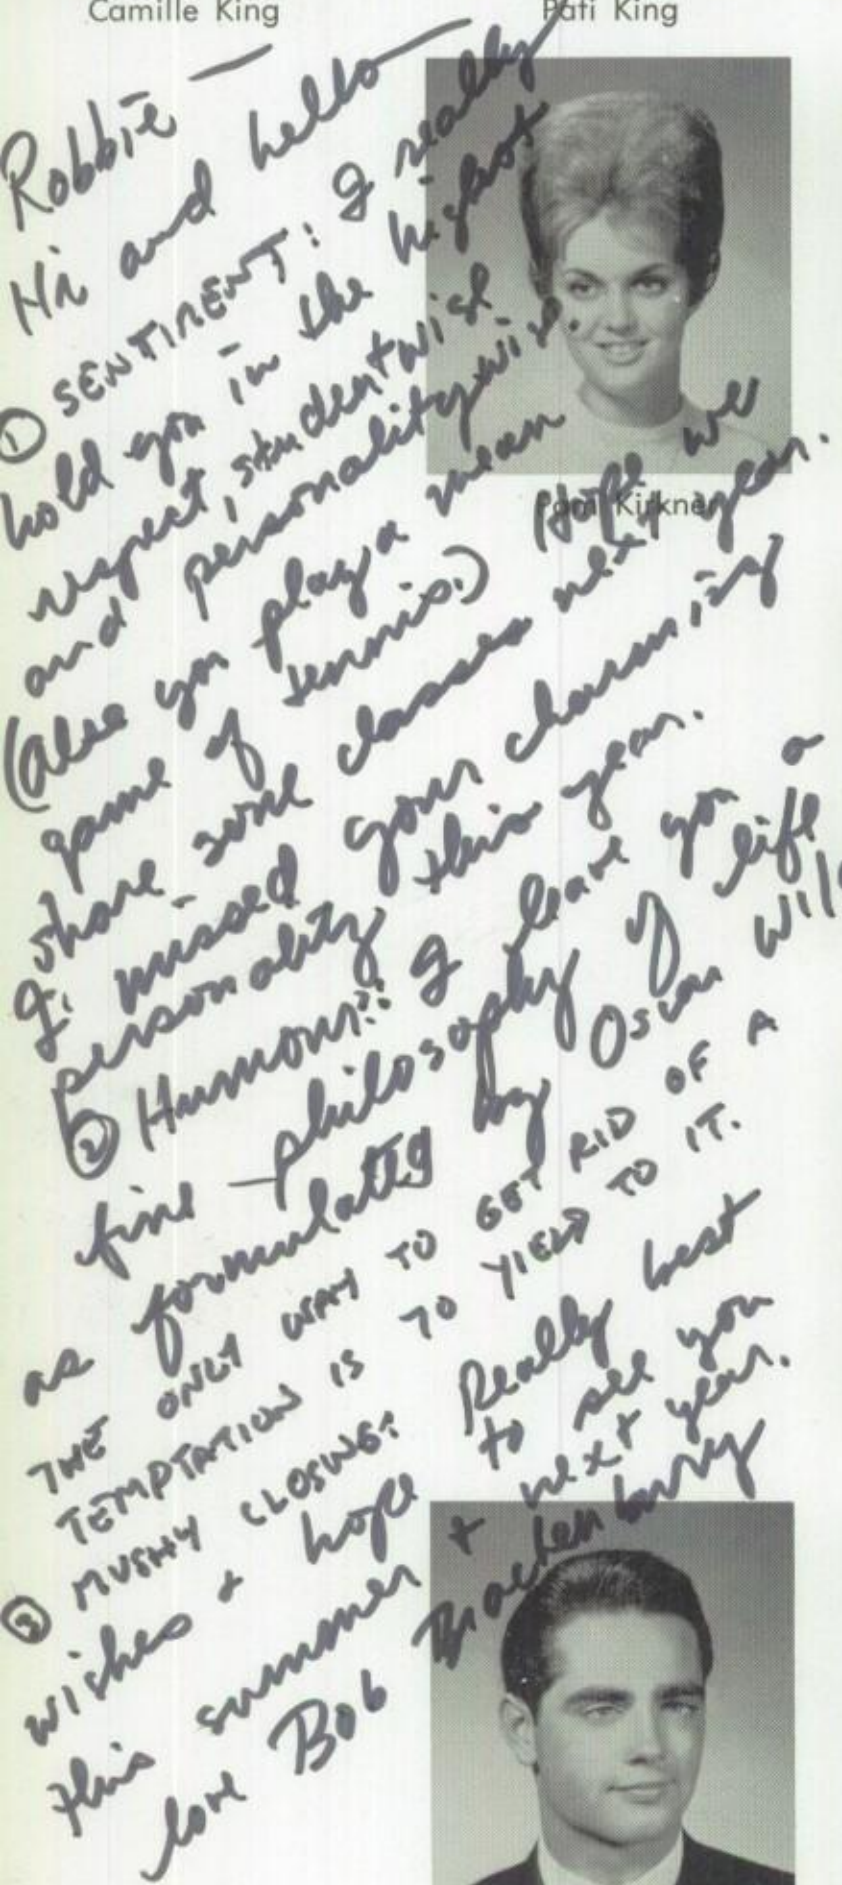 Camille King
Pati King
Robbie —
Hi and hello —
① SENTIMENT: I really
hold you in the highest
respect, studentwise
and personalitywise.
(Also you play a mean
game of tennis.) Hope we
share some classes next year.
I missed your charming
personality this year.
② Humour?: I leave you a
fine philosophy of life
as formulated by Oscar Wil
THE ONLY WAY TO GET RID OF A
TEMPTATION IS TO YIELD TO IT.
③ MUSHY CLOSING: Really best
wishes & hope to see you
this summer & next year.
love Bob Brackenbury
Pam Kirkner